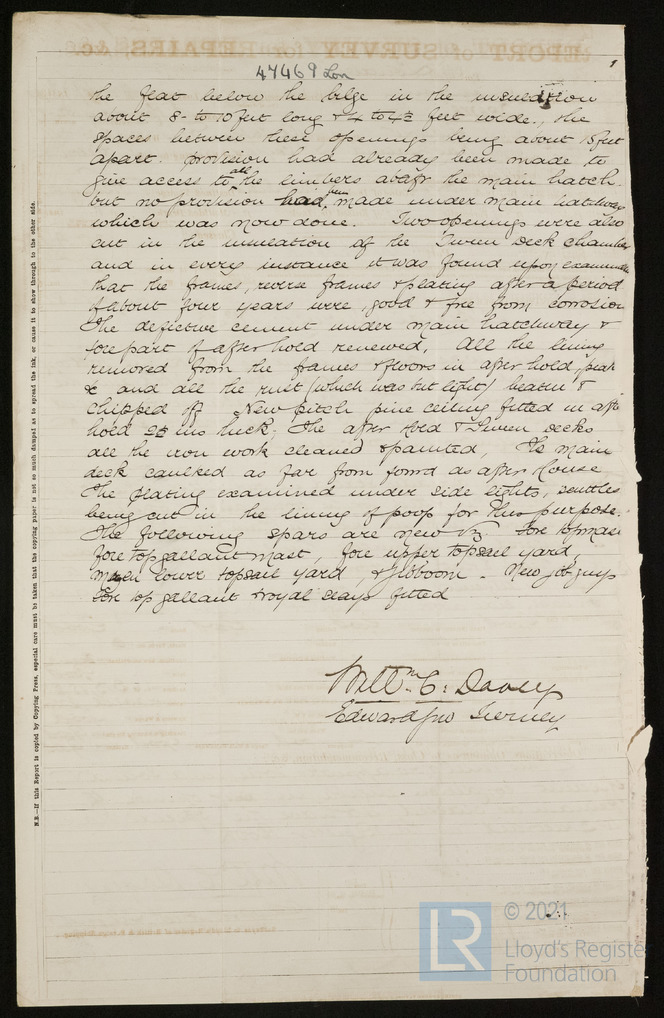 47469 Lon
the flat below the bilge in the insulation
about 8 to 10 feet long & 4 to 4½ feet wide, the
spaces between these openings being about 15 feet
apart. provision had already been made to
give access to all the limbers abaft the main hatch
but no provision had been made under main hatchway
which was now done. Two openings were also
cut in the insulation of the Tween deck chamber
and in every instance it was found upon
that the frames, reverse frames & plating after a period
of about four years were good & free from corrosion
The defective cement under main hatchway &
fore part of after hold renewed, All the lining
removed from the frames & floors in after hold, peak
& and all the rust (which was but light) beaten &
chipped off New pitch pine ceiling fitted in aft
hold 2½ ins thick; The after hold & Tween decks
all the iron work cleaned & painted, The main
deck caulked as far from ford as after House
The plating examined under side lights, scuttles
being cut in the lining of poop for this purpose.
The following spars are new Viz. Fore topmast
fore top gallant mast, fore upper topsail yard,
lower topsail yard, & jibboom - New jib guys
Fore top gallant & royal stays fitted
Will^m. C: Davey
Edward Jno Tierney
N.B.—If this Report is copied by Copying Press, especial care must be taken that the copying paper is not so much damped as to spread the ink, or cause it to show through to the other side.
LR
© 2021
Lloyd's Register
Foundation